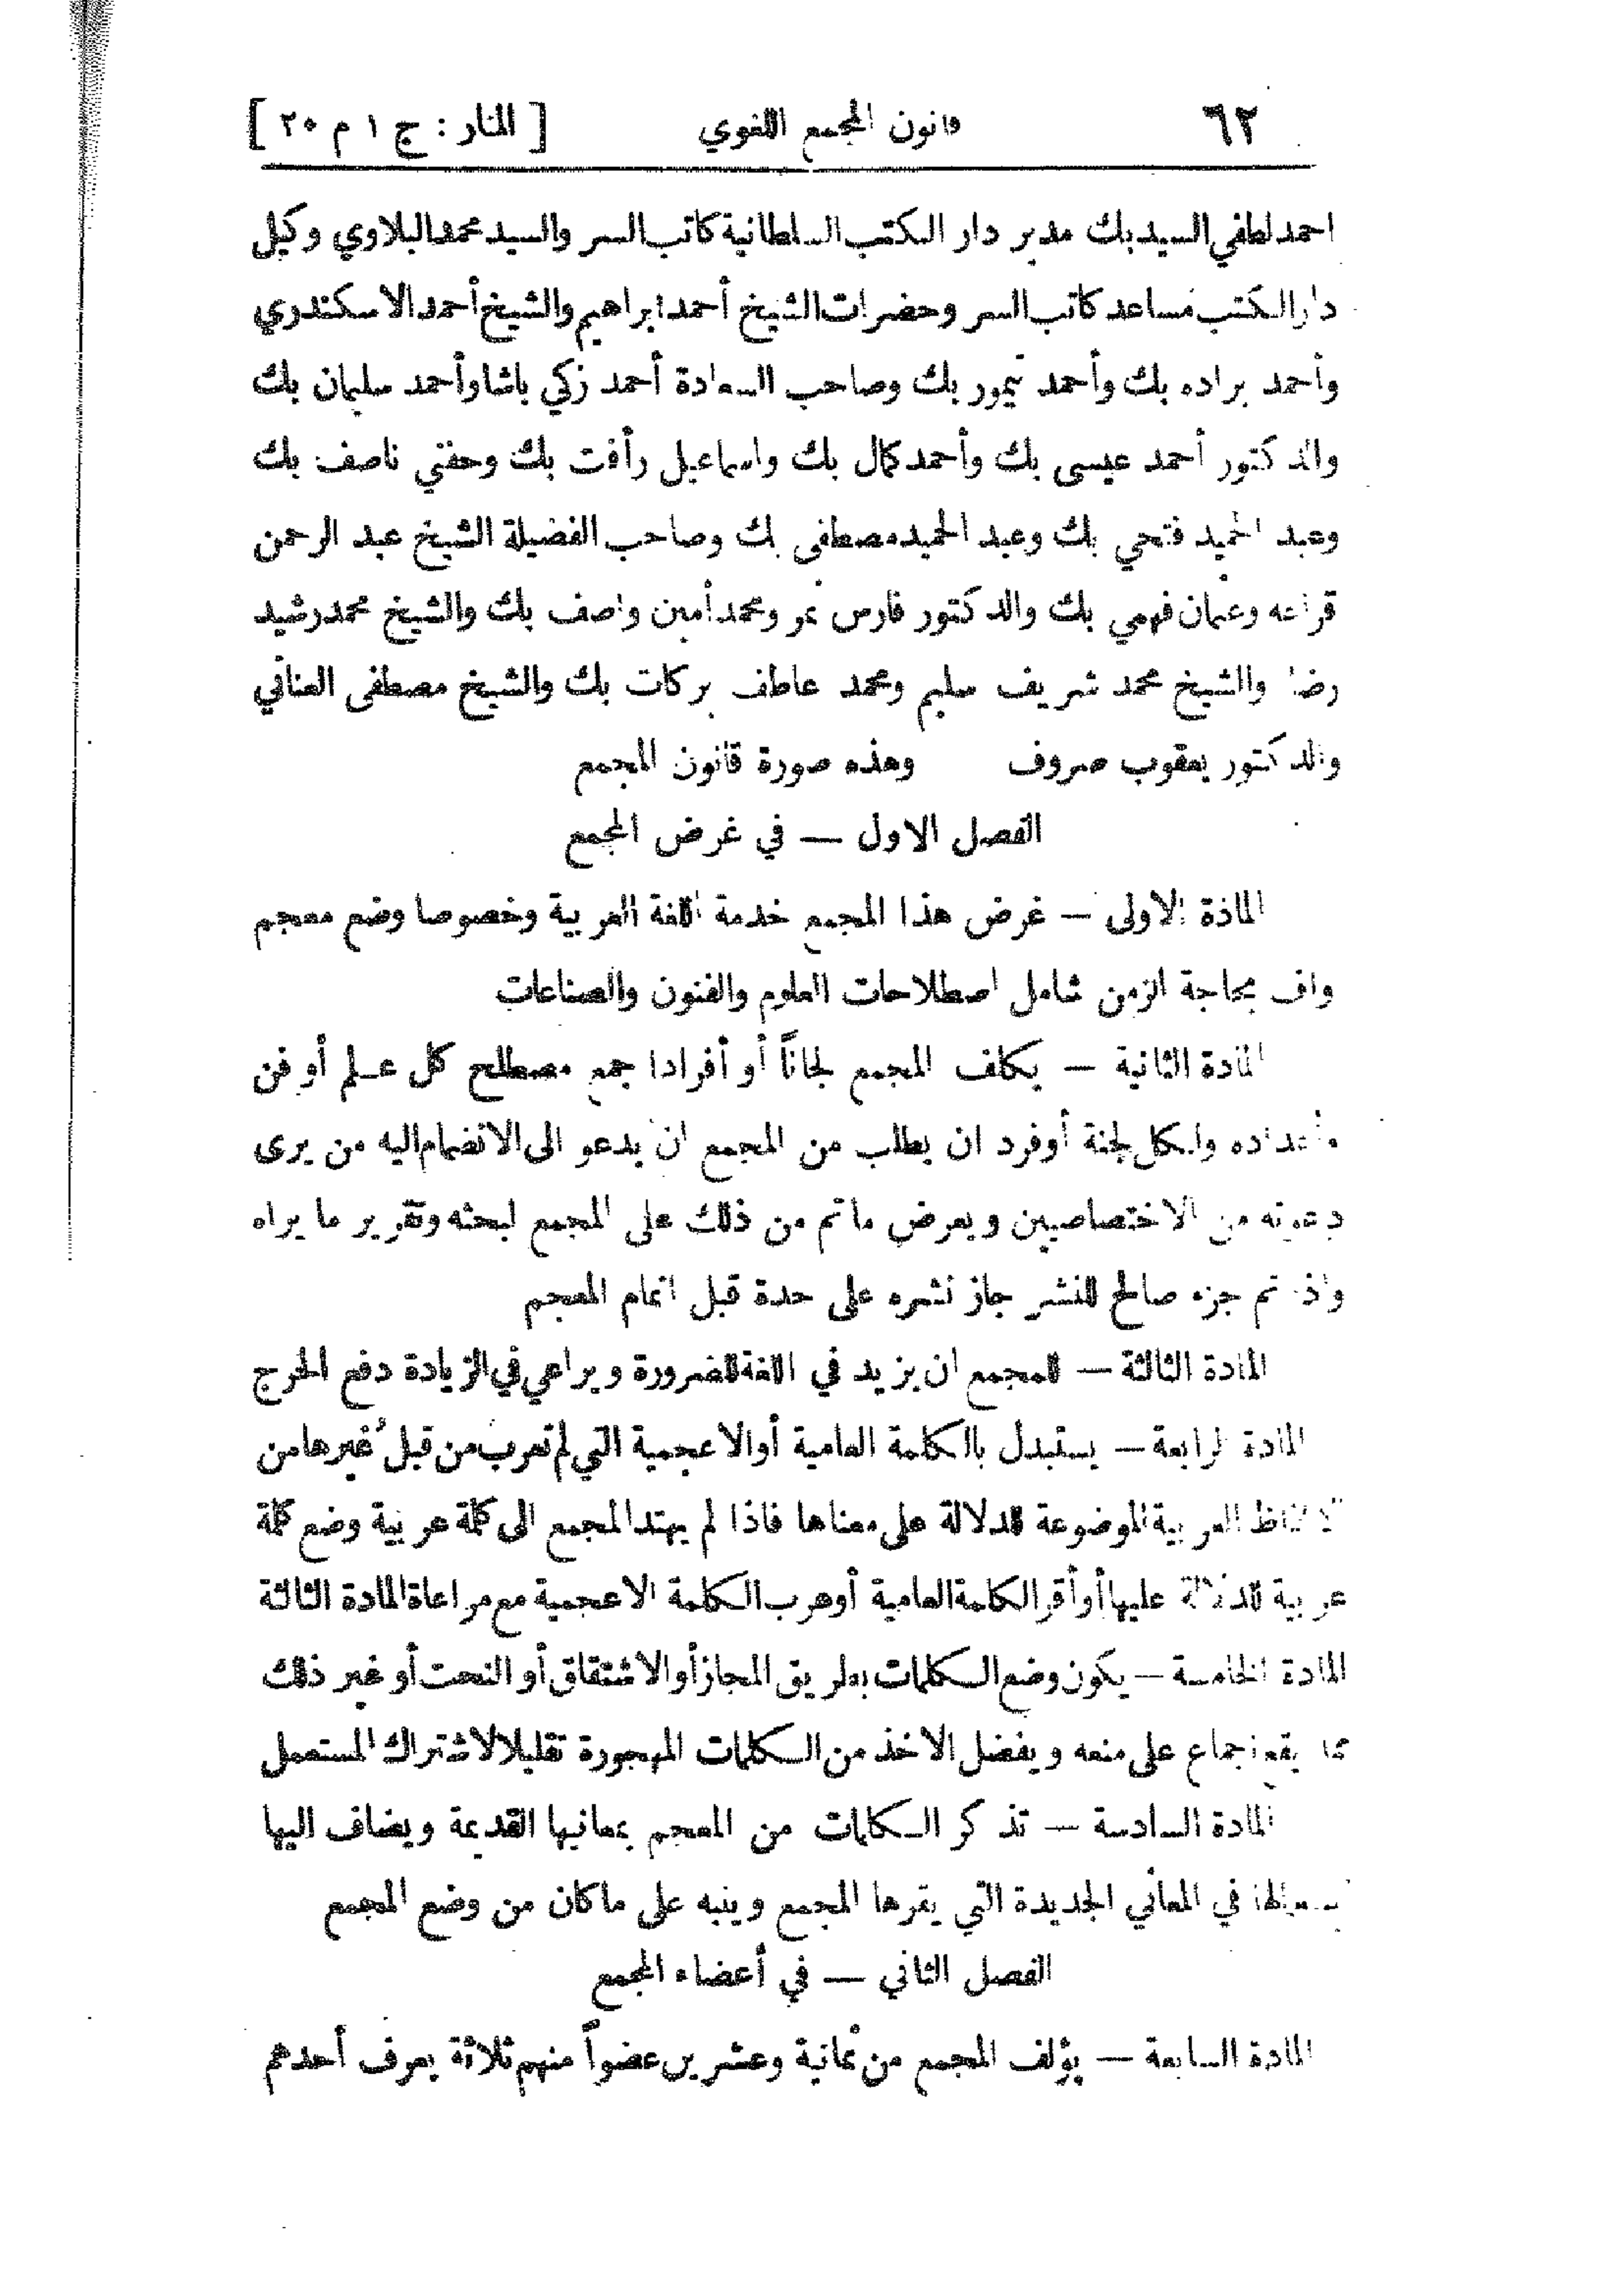 ٦٢ قانون المجمع اللغوي [ المنار : ج ١ م ٢٠ ]
احمد لطفي السيد بك مدير دار الكتب السلطانية كاتب السر والسيد محمد الببلاوي وكيل
دار الكتب مساعد كاتب السر وحضرات الشيخ أحمد ابراهيم والشيخ أحمد الاسكندري
وأحمد براده بك وأحمد تيمور بك وصاحب السعادة أحمد زكي باشا وأحمد سليمان بك
والدكتور أحمد عيسى بك وأحمد كمال بك واسماعيل رأفت بك وحفني ناصف بك
وعبد الحميد فتحي بك وعبد الحميد مصطفى بك وصاحب الفضيلة الشيخ عبد الرحمن
قراعه وعثمان فهمي بك والدكتور فارس نمر ومحمد أمين واصف بك والشيخ محمد رشيد
رضا والشيخ محمد شريف سليم ومحمد عاطف بركات بك والشيخ مصطفى العناني
والدكتور يعقوب صروف وهذه صورة قانون المجمع
الفصل الاول — في غرض المجمع
المادة الاولى — غرض هذا المجمع خدمة اللغة العربية وخصوصا وضع معجم
واف بحاجة الزمن شامل اصطلاحات العلوم والفنون والصناعات
المادة الثانية — يكلف المجمع لجاناً أو أفرادا جمع مصطلح كل علم أو فن
واعداده ولكل لجنة أوفرد ان يطلب من المجمع ان يدعو الى الانضمام اليه من يرى
دعوته من الاختصاصيين ويعرض ماتم من ذلك على المجمع لبحثه وتقرير ما يراه
واذا تم جزء صالح للنشر جاز نشره على حدة قبل اتمام المعجم
المادة الثالثة — للمجمع ان يزيد في اللغة للضرورة ويراعي في الزيادة دفع الحرج
المادة الرابعة — يستبدل بالكلمة العامية أو الاعجمية التي لم تعرب من قبل غيرها من
الالفاظ العربية الموضوعة للدلالة على معناها فاذا لم يهتد المجمع الى كلمة عربية وضع كلمة
عربية للدلالة عليها أو أقر الكلمة العامية أو عرب الكلمة الاعجمية مع مراعاة المادة الثالثة
المادة الخامسة — يكون وضع الكلمات بطريق المجاز أو الاشتقاق أو النحت أو غير ذلك
مما يقع اجماع على منعه ويفضل الاخذ من الكلمات المهجورة تقليلا لاشتراك المستعمل
المادة السادسة — تذكر الكلمات من المعجم بمعانيها القديمة ويضاف اليها
في المعاني الجديدة التي يقرها المجمع وينبه على ماكان من وضع المجمع
الفصل الثاني — في أعضاء المجمع
المادة السابعة — يؤلف المجمع من ثمانية وعشرين عضواً منهم ثلاثة يعرف أحدهم